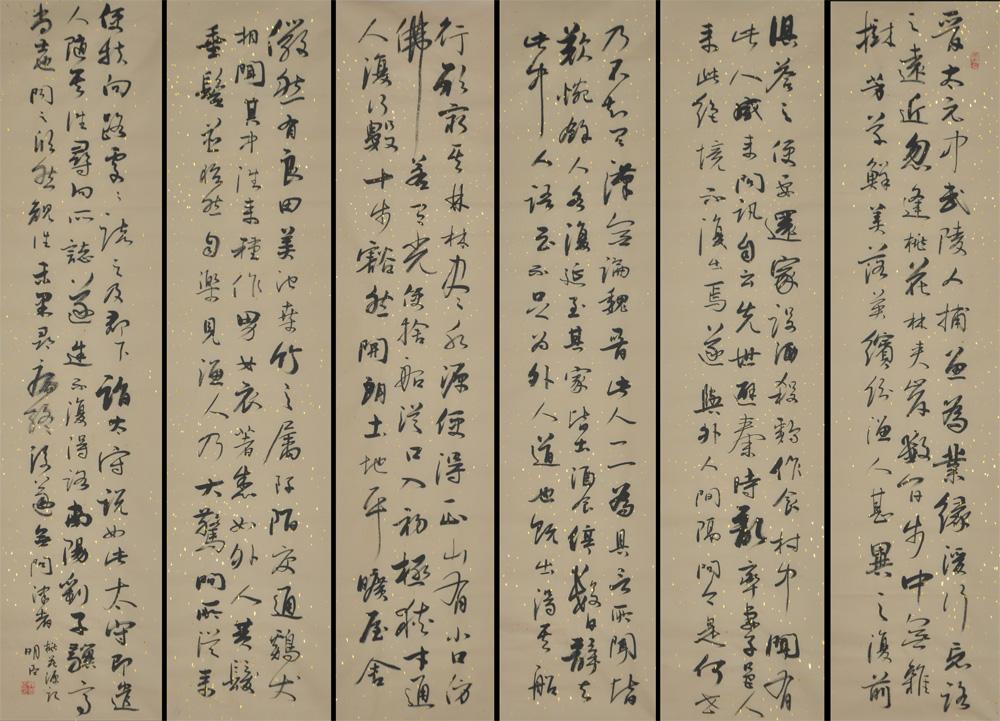 晉太元中武陵人捕魚為業緣溪行忘路
之遠近忽逢桃花林夾岸數百步中無雜
樹芳草鮮美落英繽紛漁人甚異之復前
俱答之便要還家設酒殺雞作食村中聞有
此人咸來問訊自云先世避秦時亂率妻子邑人
來此絕境不復出焉遂與外人間隔問今是何世
乃不知有漢無論魏晉此人一一為具言所聞皆
歎惋餘人各復延至其家皆出酒食停數日辭去
此中人語云不足為外人道也既出得其船
行欲窮其林林盡水源便得一山有小口仿
彿若有光便捨船從口入初極狹才通
人復行數十步豁然開朗土地平曠屋舍
儼然有良田美池桑竹之屬阡陌交通雞犬
相聞其中往來種作男女衣著悉如外人黃髮
垂髫並怡然自樂見漁人乃大驚問所從來
便扶向路處處誌之及郡下詣太守說如此太守即遣
人隨其往尋向所誌遂迷不復得路南陽劉子驥高
尚士也聞之欣然規往未果尋病終後遂無問津者
桃花源記
明